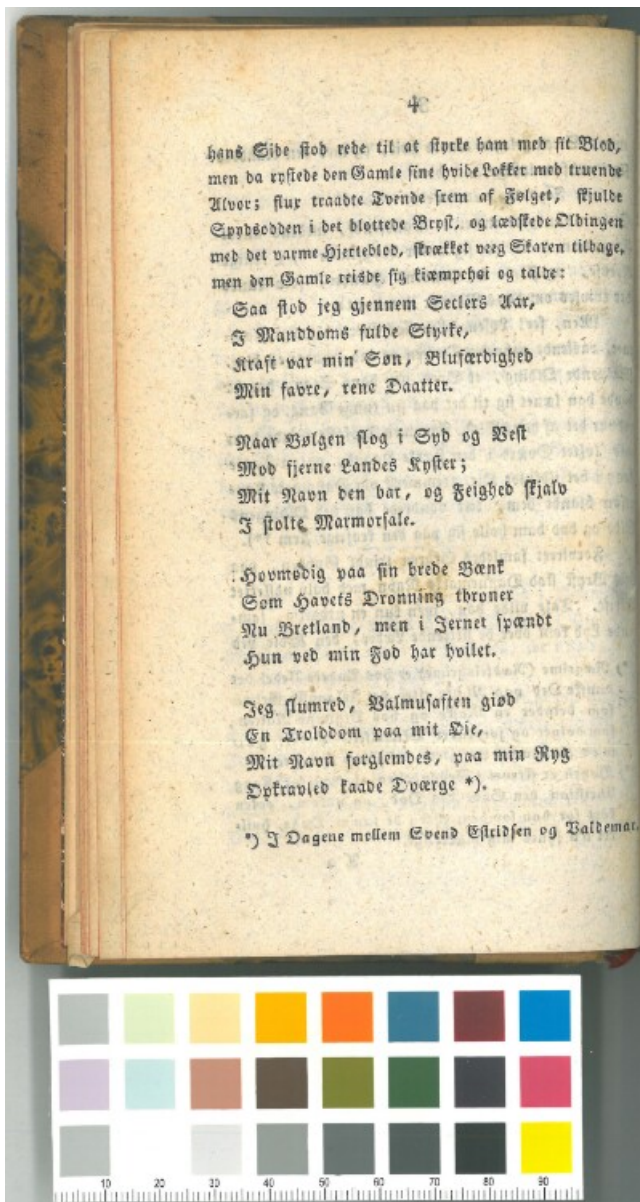 4
hans Side stod rede til at styrke ham med sit Blod,
men da rystede den Gamle sine hvide Lokker med truende
Alvor; flux traadte Tvende frem af Følget, skjulde
Spydsodden i det blottede Bryst, og lædskede Oldingen
med det varme Hjerteblod, skrækket veeg Skaren tilbage,
men den Gamle reisde sig kiæmpehøi og talde:
Saa stod jeg gjennem Seclers Aar,
I Manddoms fulde Styrke,
Kraft var min Søn, Blufærdighed
Min favre, rene Daatter.
Naar Bølgen slog i Syd og Vest
Mod fjerne Landes Kyster;
Mit Navn den bar, og Feighed skjalv
I stolte Marmorsale.
Hovmodig paa sin brede Bænk
Som Havets Dronning throner
Nu Bretland, men i Jernet spændt
Hun ved min Fod har hvilet.
Jeg slumred, Valmusaften giød
En Trolddom paa mit Øie,
Mit Navn forglemdes, paa min Ryg
Opkravled kaade Dværge *).
*) I Dagene mellem Svend Estridsen og Valdemar.
10 20 30 40 50 60 70 80 90